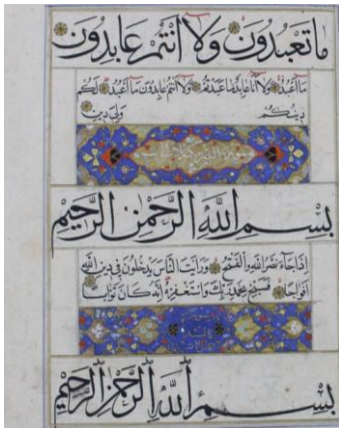 ما تعبدون ولا انتم عابدون
ما أعبد ولا أنا عابد ما عبدتم ولا أنتم عابدون ما أعبد لكم
دينكم ولي دين
بسم الله الرحمن الرحيم
إذا جاء نصر الله والفتح ورأيت الناس يدخلون في دين الله
أفواجا فسبح بحمد ربك واستغفره إنه كان توابا
بسم الله الرحمن الرحيم